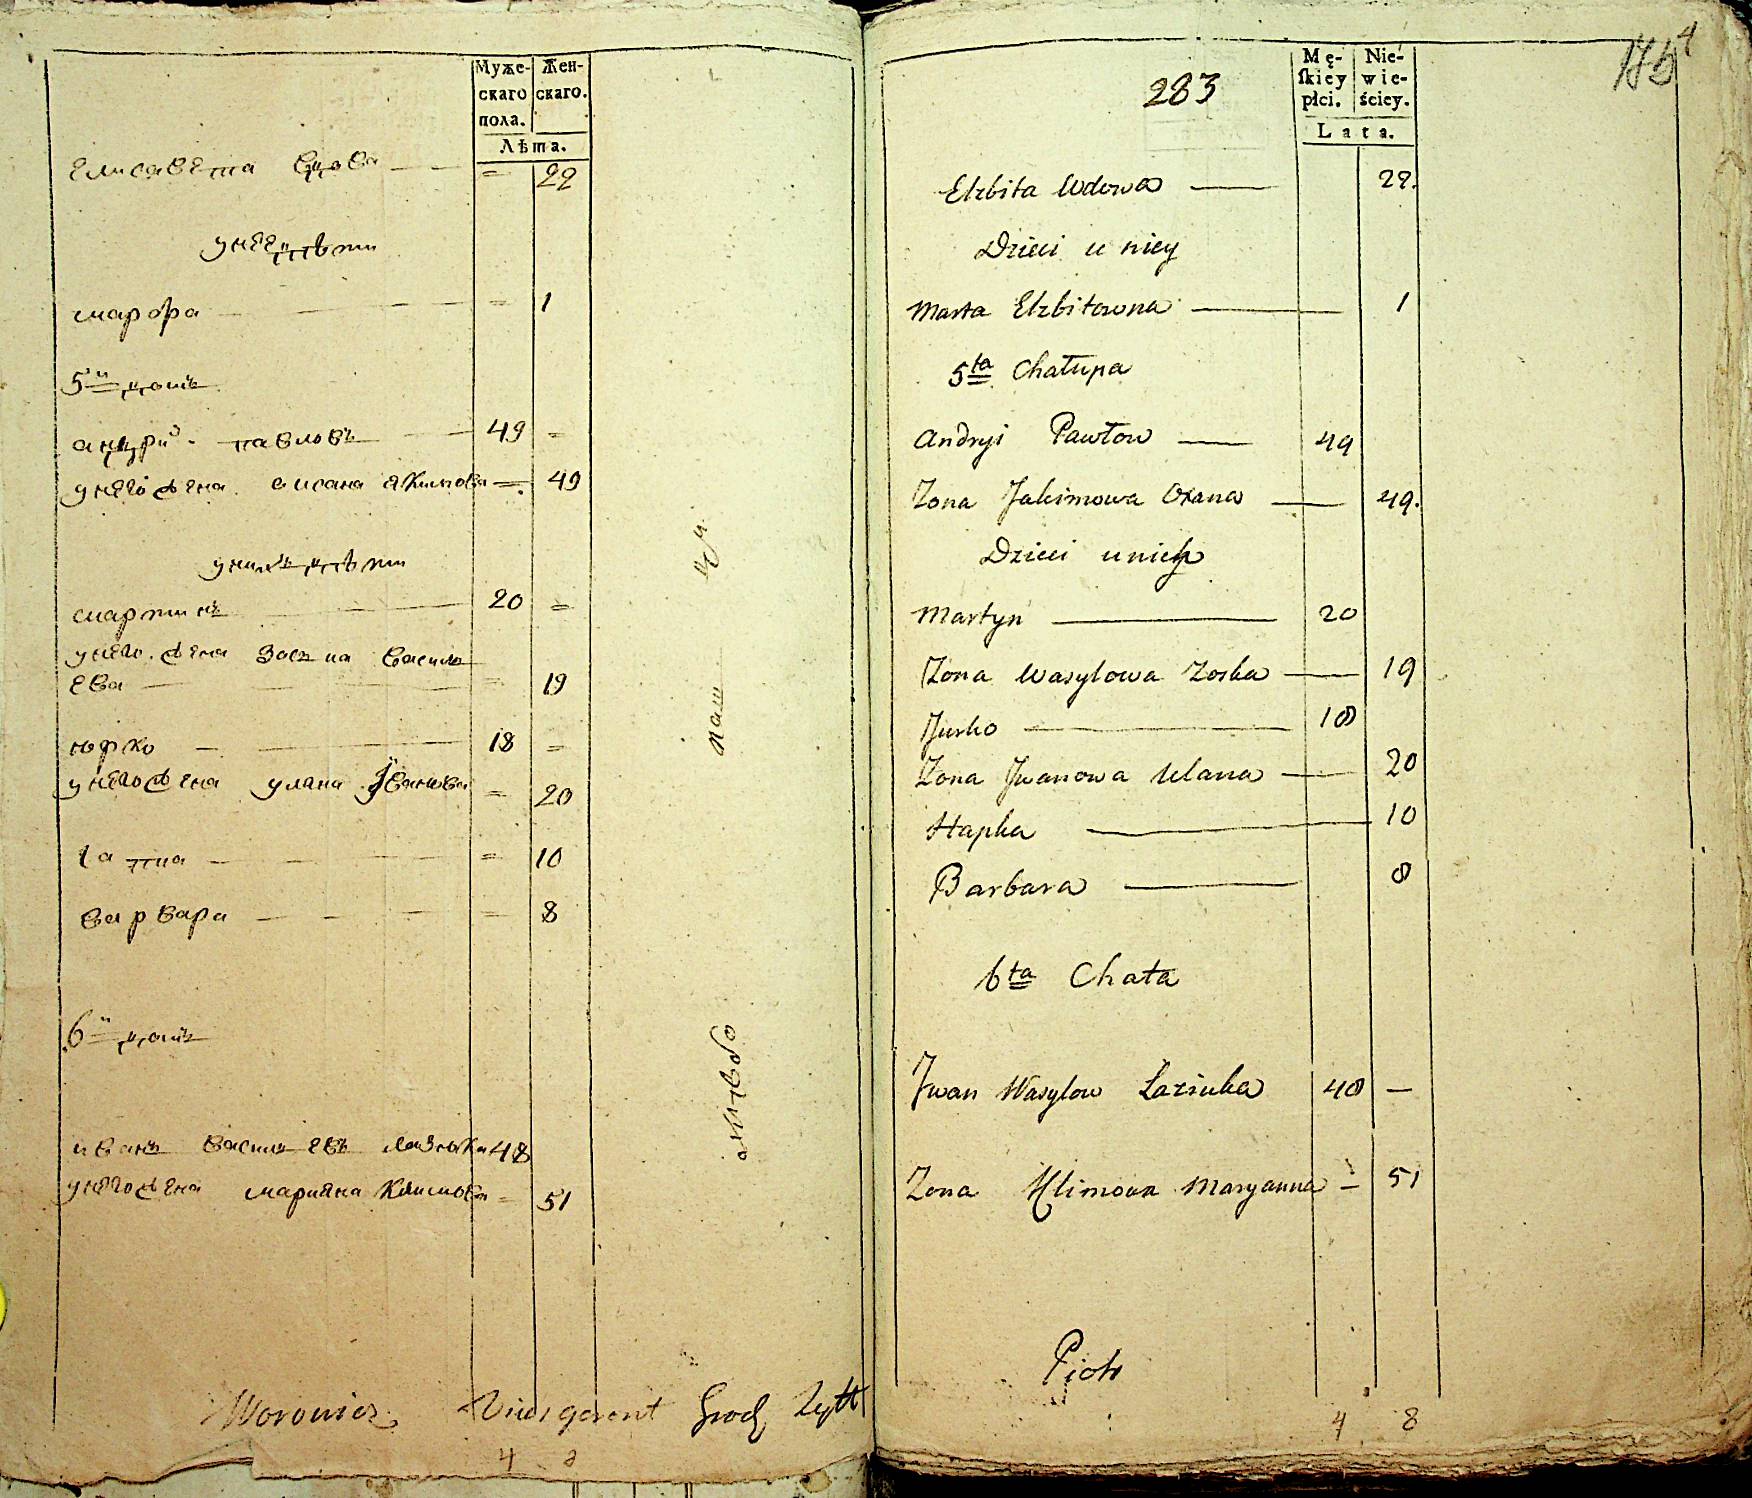 Муже-
скаго
пола.
Жен-
скаго.
Лѣта.
елисавета вдова — = 22
унее дѣти
марфа — = 1
5й домъ
андрий павловъ — 49 =
унего жена оксана якимова — = 49
унихъ дѣти
мартинъ — 20 =
унего жена зоська василь
ева — = 19
юрко — 18 =
унего жена улана Иванова = 20
гапка — = 10
варвара — = 8
6й домъ
иванъ васильевъ лазюка 48
унего жена марияна климова = 51
Woronicz Vicesgerent Grodz Żytt
4
283
Mę-
ſkiey
płci.
Nie-
wie-
ściey.
Lata.
Elzbita Wdowa — 22.
Dzieci u niey
Marta Elzbitowna — 1
5ta Chałupa
Andryi Pawłow — 49
Zona Jakimowa Oxana — 49.
Dzieci u nich
Martyn — 20
Zona Wasylowa Zoska — 19
Jurko — 18
Zona Jwanowa Ulana — 20
Hapka — 10
Barbara — 8
6ta Chata
Jwan Wasylow Łaziuka 48 —
Zona Klimowa Maryanna — 51
Piotr
4 8